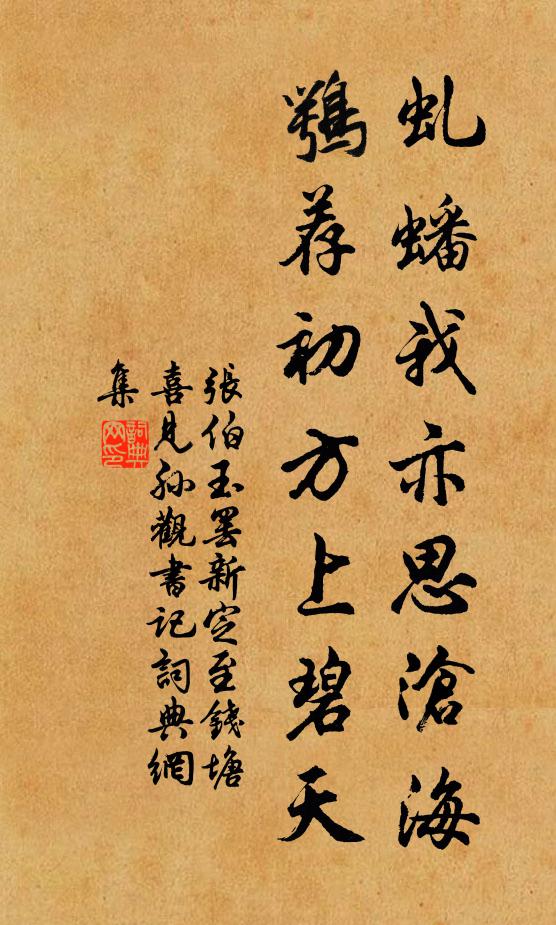 虬蟠我亦思滄海
鶚荐初方上碧天
張伯玉罢新定至錢塘
喜見孙觀書記詞典網
集
詞典網印